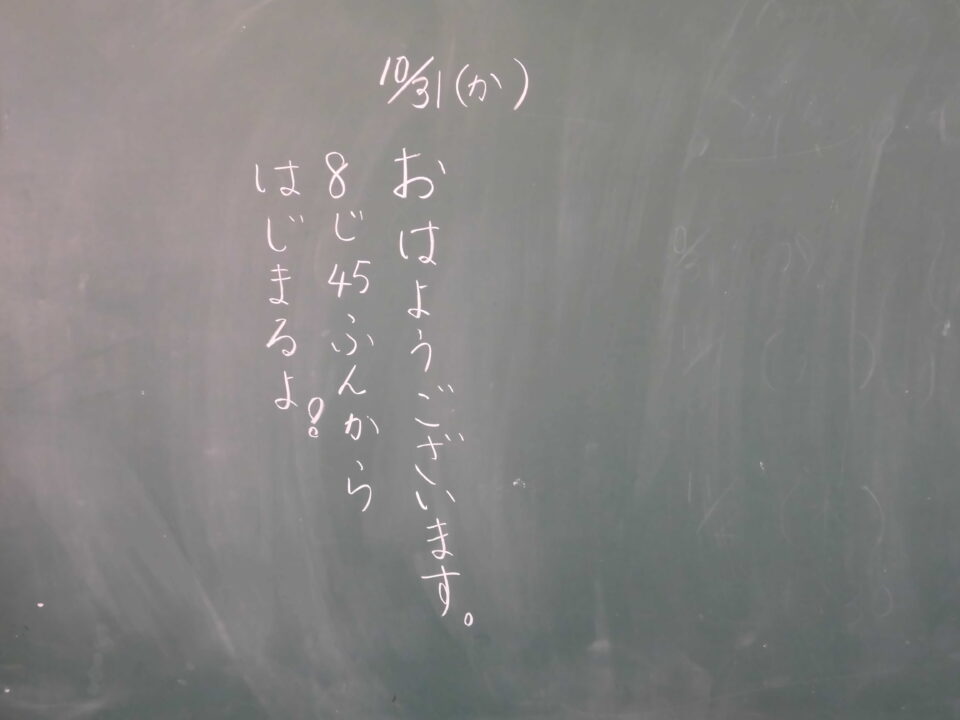 10/31(か)
おはようございます。
8じ45ふんから
はじまるよ!